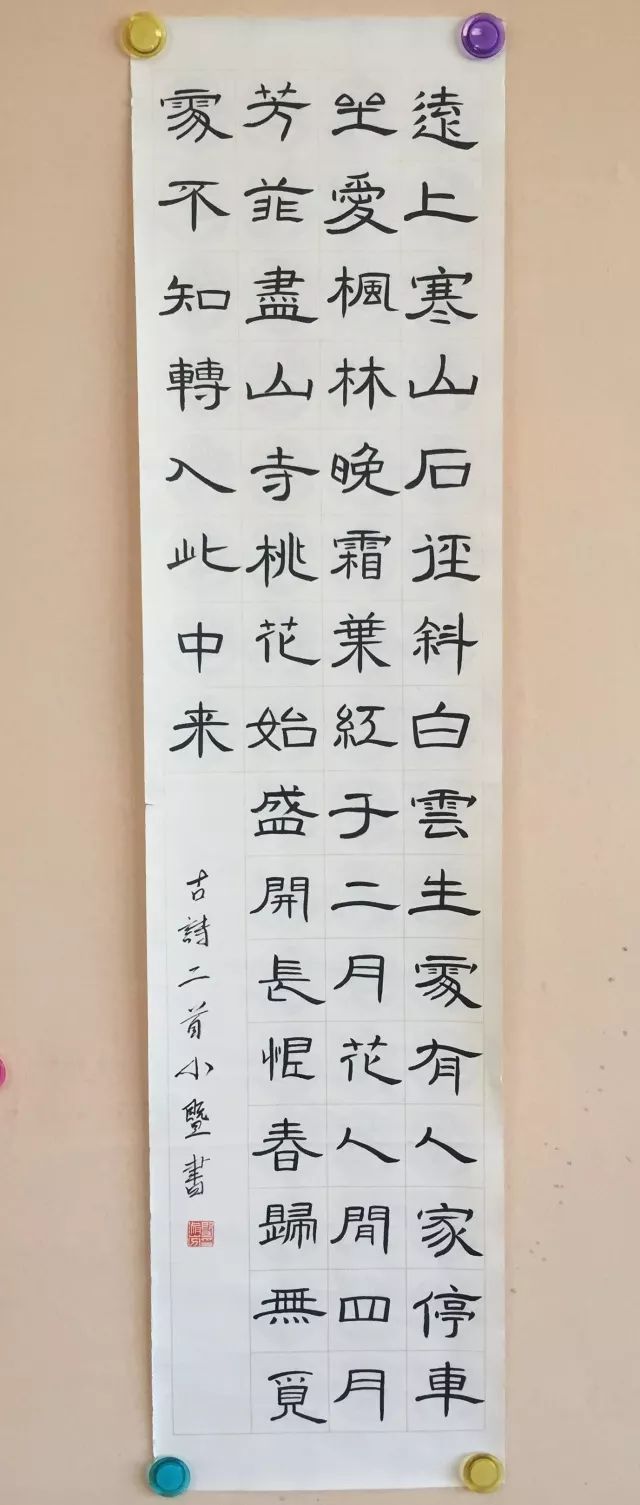 遠上寒山石徑斜白雲生處有人家停車
坐愛楓林晚霜葉紅于二月花人間四月
芳菲盡山寺桃花始盛開長恨春歸無覓
處不知轉入此中来
古詩二首小暨書